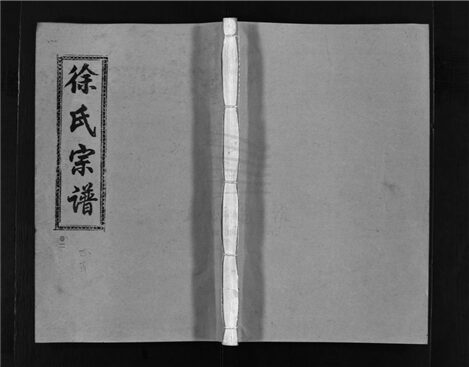 徐氏宗谱